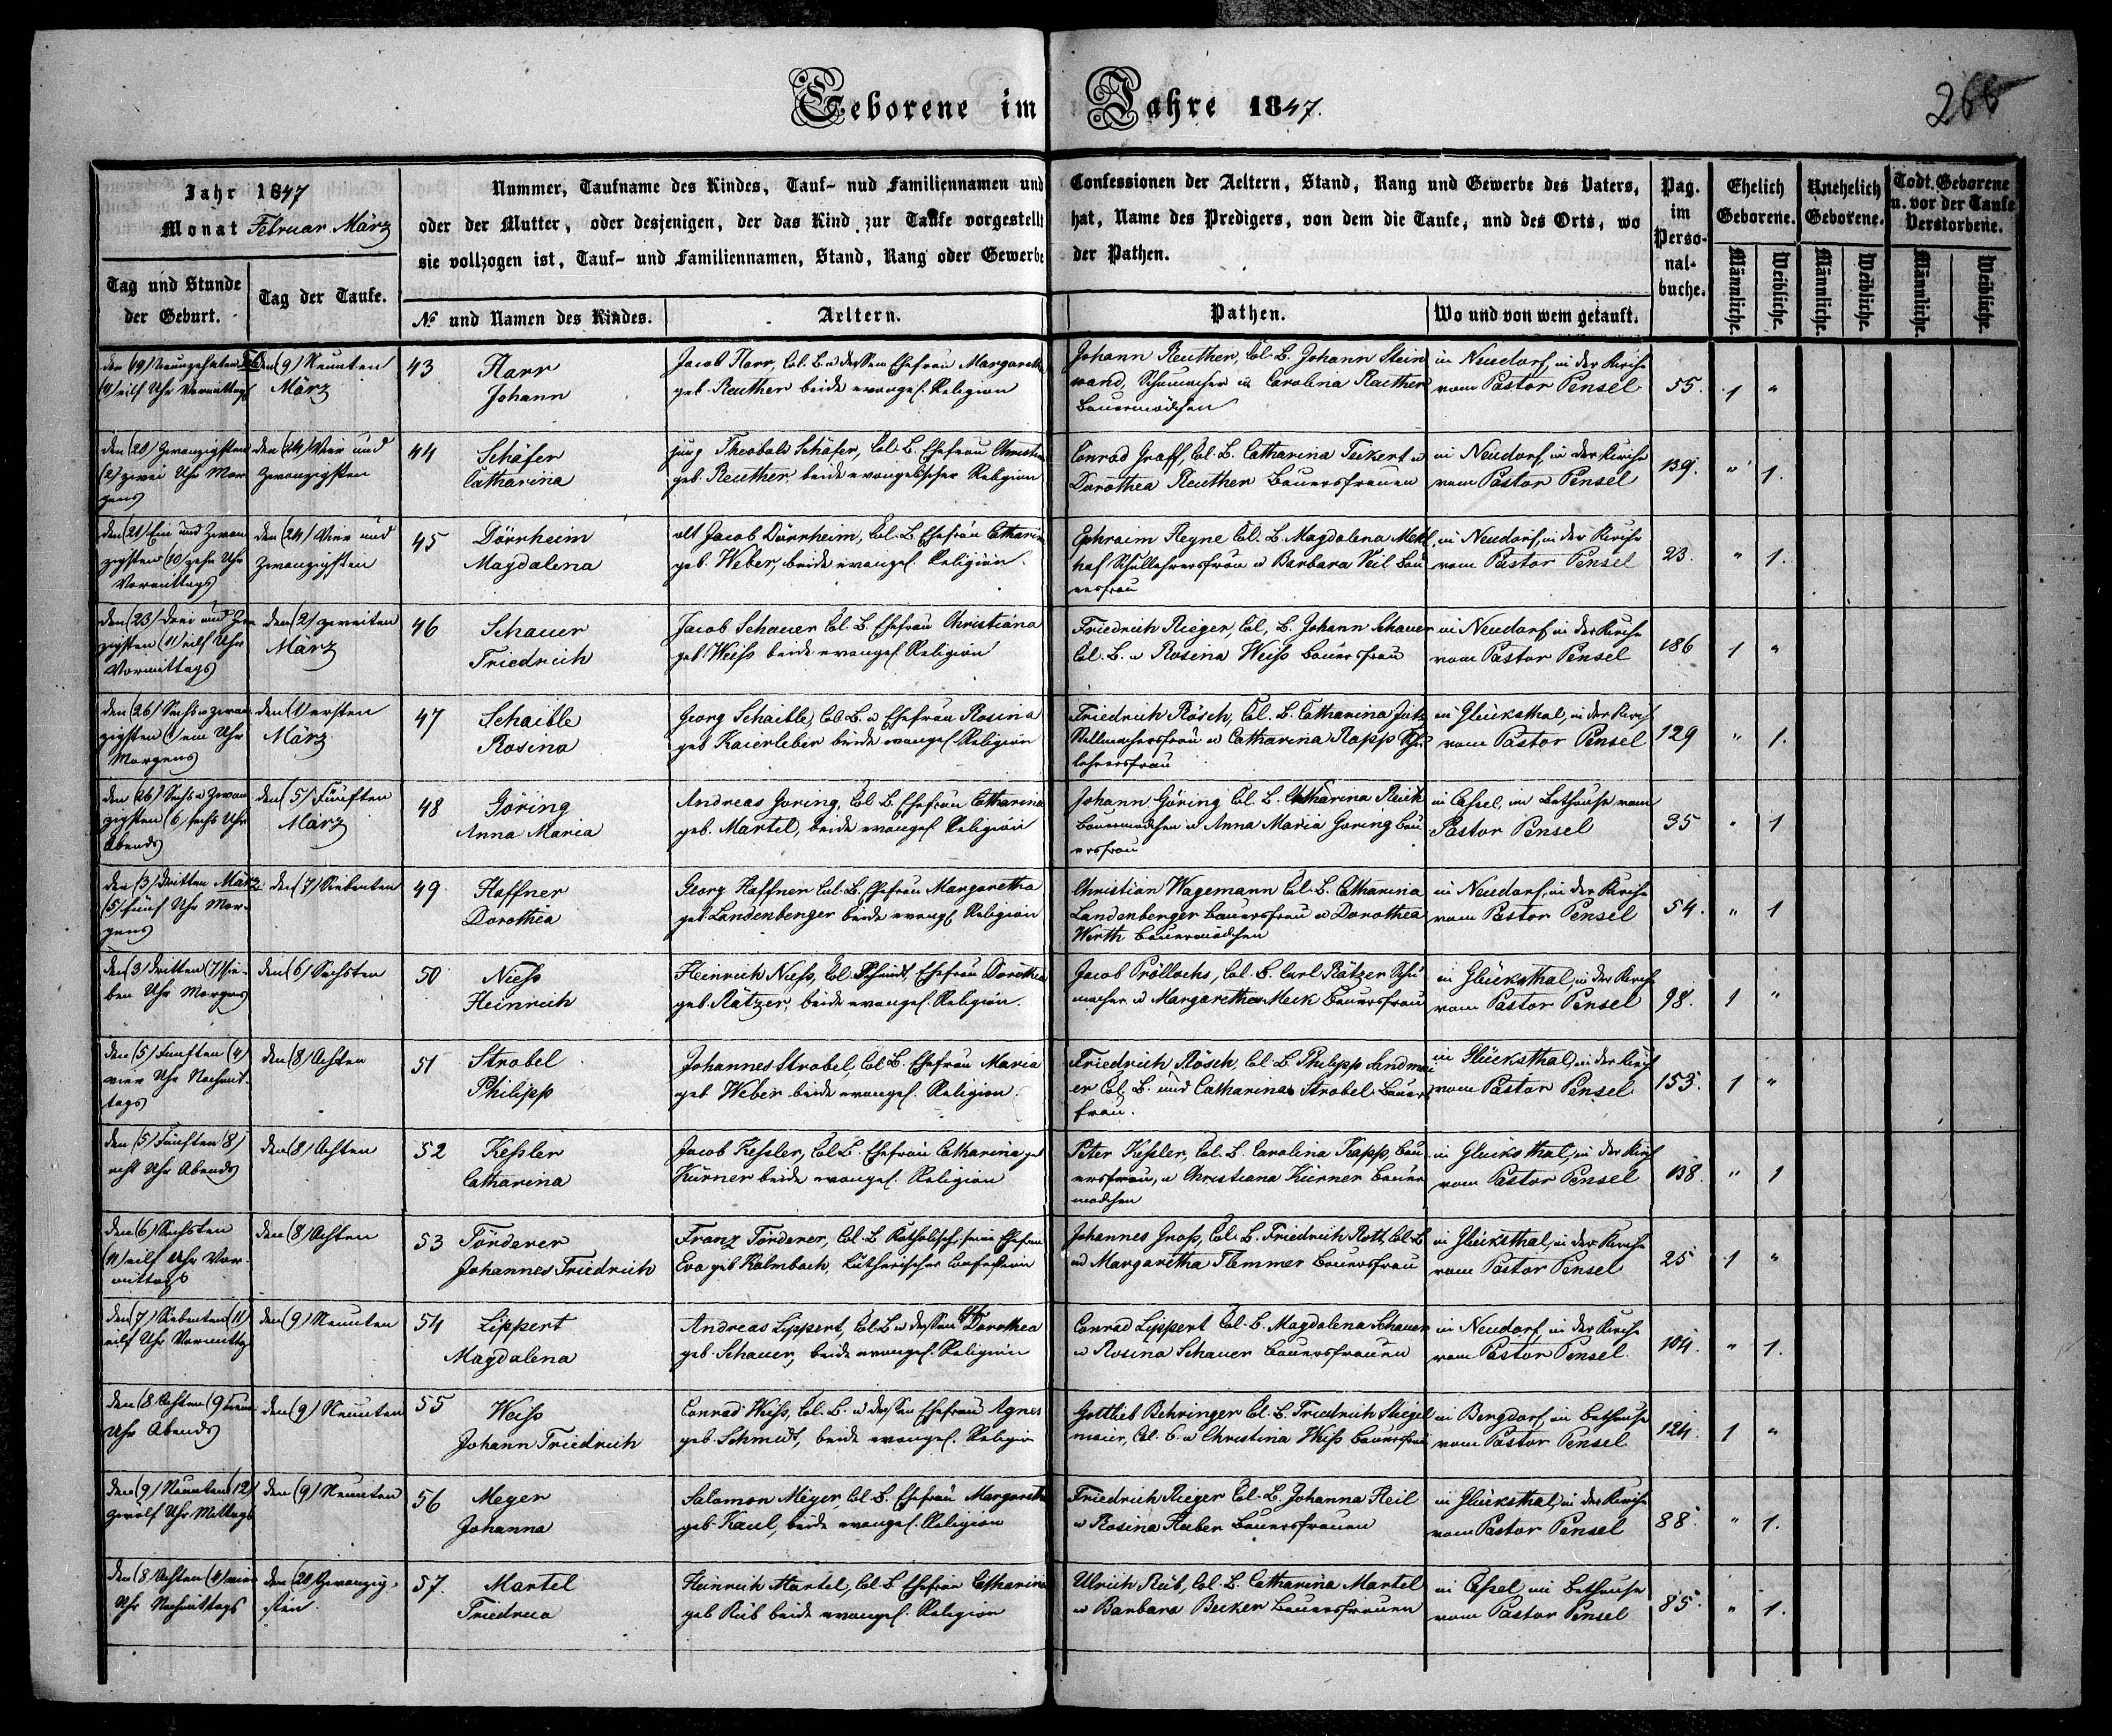 Geborene im Jahre 1847.
266
Jahr 1847
Monat Februar März
Tag und Stunde
der Geburt.
Tag der Taufe.
Nummer, Taufname des Kindes, Tauf- nud Familiennamen und
oder der Mutter, oder desjenigen, der das Kind zur Taufe vorgestellt
sie vollzogen ist, Tauf- und Familiennamen, Stand, Rang oder Gewerbe
No und Namen des Kindes.
Aeltern.
Confessionen der Aeltern, Stand, Rang und Gewerbe des Vaters,
hat, Name des Predigers, von dem die Taufe, und des Orts, wo
der Pathen.
Pathen.
Wo und von wem getauft.
Pag.
im
Perso-
nal-
buche.
Ehelich
Geborene.
Unehelich
Geborene.
Todt Geborene
u. vor der Taufe
Verstorbene.
Männliche.
Weibliche.
Männliche.
Weibliche.
Männliche.
Weibliche.
den (19) Neunzehnten Feb
(11) eilf Uhr Vormittags
den (9) Neunten
März
43
Harr
Johann
Jacob Harr, Col. B. u dessen Ehefrau Margaretha
geb. Reuther beide evangel. Religion
Johann Reuther, Col. B. Johann Stein
wand, Schumacher u Carolina Reuther
Bauermädchen
in Neudorf, in der Kirche
vom Pastor Pensel
55. 1 "
den (20) Zwanzigsten
(2) zwei Uhr Mor
gens
den (24) Vier und
zwanzigsten
44
Schäfer
Catharina
jung Theobald Schäfer, Col. B. Ehefrau Christina
geb. Reuther beide evangelischer Religion
Conrad Graff, Col. B. Catharina Teikert u
Dorothea Reuther Bauersfrauen
in Neudorf, in der Kirche
vom Pastor Pensel
139. " 1.
den (21) Ein und Zwan
zigsten (10) zehn Uhr
Vormittags
den (24) Vier und
Zwanzigsten
45
Dörrheim
Magdalena
alt Jacob Dürrheim, Col. B. Ehefrau Catharina
geb. Weber, beide evangel. Religion.
Ephraim Heyne Col. B. Magdalena Mehl
haf Schullehrersfrau u Barbara Veil Bau
ersfrau
in Neudorf, in der Kirche
vom Pastor Pensel
23. " 1.
den (23) Drei und Zwan
zigsten (11) eilf Uhr
Vormittags
den (2) zweiten
März
46
Schauer
Friedrich
Jacob Schauer Col. B. Ehefrau Christiana
geb. Weiss beide evangel. Religion
Friedrich Rieger, Col. B. Johann Schauer
Col. B. u Rosina Weiss Bauersfrau
in Neudorf, in der Kirche
vom Pastor Pensel
186 1 "
den (26) Sechs u zwan
zigsten (1) ein Uhr
Morgens
den (1) ersten
März
47
Schaible
Rosina
Georg Schaible, Col. B. u Ehefrau Rosina
geb. Kaierleber beide evangel. Religion
Friedrich Rösch, Col. B. Catharina Jutz
Stellmachersfrau u Catharina Rapp Schu
lehrersfrau
in Glücksthal, in der Kirch
vom Pastor Pensel
129 " 1.
den (26) Sechs u Zwan
zigsten (6) sechs Uhr
Abends
den (5) Fünften
März
48
Göring
Anna Maria
Andreas Göring, Col. B. Ehefrau Catharina
geb. Martel, beide evangel. Religion
Johann Göring Col. B. Catharina Reich
Bauermädchen u Anna Maria Göring Bau
ersfrau
in Cassel, im Bethause vom
Pastor Pensel
35 " 1
den (3) Dritten März
(5) fünf Uhr Mor-
gens
den (7) Siebenten
49
Haffner
Dorothea
Georg Haffner Col. B. Ehefrau Margaretha
geb. Landenberger beide evangl. Religion
Christian Wagemann Col. B. Catharina
Landenberger Bauersfrau u Dorothea
Werth Bauermädchen
in Neudorf, in der Kirche
vom Pastor Pensel
54. " 1
den (3) Dritten (7) Sie-
ben Uhr Morgens
den (6) Sechsten
50
Niess
Heinrich
Heinrich Niess, Col. Schmidt, Ehefrau Dorothea
geb. Rätzer, beide evangel. Religion.
Jacob Pröllochs, Col. B. Carl Rätzer Schu
macher u Margaretha Meck Bauersfrau
in Glücksthal, in der Kirche
vom Pastor Pensel
98. 1 "
den (5) Fünften (4)
vier Uhr Nachmit-
tags
den (8) Achten
51
Strobel
Philipp
Johannes Strobel, Col. B. Ehefrau Maria
geb. Weber beide evangel. Religion.
Friedrich Rösch, Col. B. Philipp Landmei
er Col. B. und Catharina Strobel Bauers
frau.
in Glücksthal, in der Kirch
vom Pastor Pensel
153. 1 "
den (5) Fünften (8)
acht Uhr Abends
den (8) Achten
52
Kessler
Catharina
Jacob Kessler, Col. B. Ehefrau Catharina geb
Kürner beide evangel. Religion
Peter Kessler, Col. B. Carolina Rapp, Bau
ersfrau, u Christiana Kürner Bauer
mädchen
in Glücksthal, in der Kirch
vom Pastor Pensel
138. " 1
den (6) Sechsten
(11) eilf Uhr Vor-
mittags
den (8) Achten
53
Förderer
Johannes Friedrich
Franz Förderer, Col. B. Katholisch, seine Ehefrau
Eva geb. Kalmbach, Lutherischer Confession
Johannes Gross, Col. B. Friedrich Roth, Col. B
u Margaretha Flemmer Bauersfrau
in Glücksthal, in der Kirche
vom Pastor Pensel
25 1 "
den (7) Siebenten (11)
eilf Uhr Vormittg
den (9) Neunten
54
Lippert
Magdalena
Andreas Lippert, Col. B u dessen Ehfr Dorothea
geb. Schauer, beide evangel. Religion
Conrad Lippert Col. B. Magdalena Schauer
u Rosina Schauer Bauersfrauen
in Neudorf, in der Kirche
vom Pastor Pensel.
104. " 1.
den (8) Achten (9) neun
Uhr Abends
den (9) Neunten
55
Weiss
Johann Friedrich
Conrad Weiss, Col. B. u dessen Ehefrau Agnes
geb. Schmidt, beide evangel. Religio
Gottlieb Behringer Col. B. Friedrich Stiegel
maier, Col. B. u Christina Weiss Bauersfrau
in Bergdorf, im Bethause
vom Pastor Pensel
124. 1 "
den (9) Neunten (12)
zwölf Uhr Mittags
den (9) Neunten
56
Meyer
Johanna
Salomon Meyer Col. B. Ehefrau Margaretha
geb. Kaul, beide evangel. Religion
Friedrich Rieger Col. B. Johanna Heil
u Rosina Huber Bauersfrauen
in Glücksthal, in der Kirche
vom Pastor Pensel
88. " 1.
den (8) Achten (4) vier
Uhr Nachmittags
den (20) Zwanzig-
sten.
57.
Martel
Friedrica
Heinrich Martel, Col. B. Ehefrau Catharina
geb Rüb beide evangel. Religion
Ulrich Rüb, Col. B. Catharina Martel
u Barbara Becker Bauersfrauen
in Cassel im Bethause
vom Pastor Pensel
85. " 1.